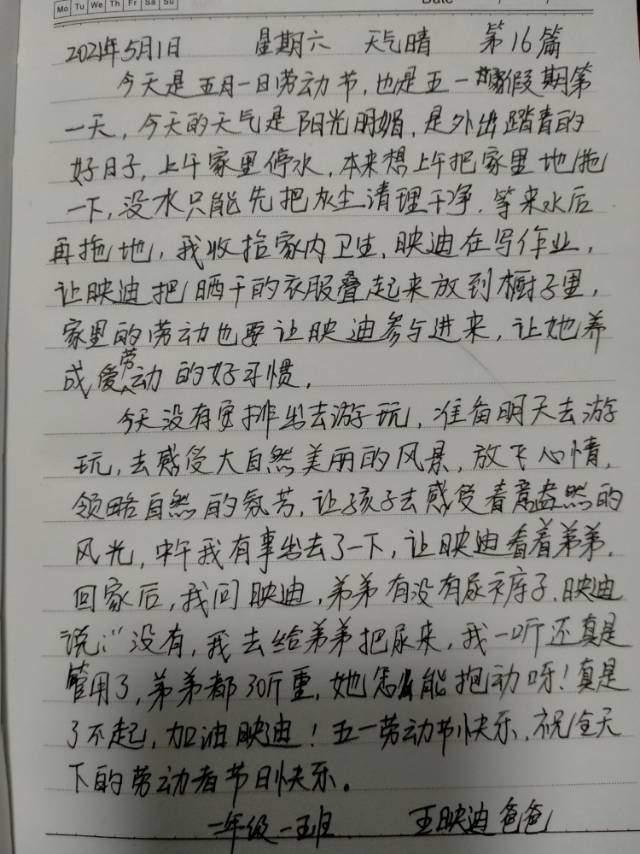 Mo Tu We Th Fr Sa Su
Date
2021年5月1日 星期六 天气晴 第16篇
今天是五月一日劳动节,也是五一假期第
一天,今天的天气是阳光明媚,是外出踏青的
好日子,上午家里停水,本来想上午把家里地拖
一下,没水只能先把灰尘清理干净,等来水后
再拖地,我收拾家内卫生,映迪在写作业,
让映迪把晒干的衣服叠起来放到橱子里,
家里的劳动也要让映迪参与进来,让她养
成爱劳动的好习惯,
今天没有安排出去游玩,准备明天去游
玩,去感受大自然美丽的风景,放飞心情,
领略自然的氛芳,让孩子去感受春意盎然的
风光,中午我有事出去了一下,让映迪看着弟弟,
回家后,我问映迪,弟弟有没有尿裤子,映迪
说:“没有,我去给弟弟把尿来,我一听还真是
管用了,弟弟都30斤重,她怎么能抱动呀!真是
了不起,加油映迪!五一劳动节快乐,祝全天
下的劳动者节日快乐。
一年级一五班 王映迪爸爸